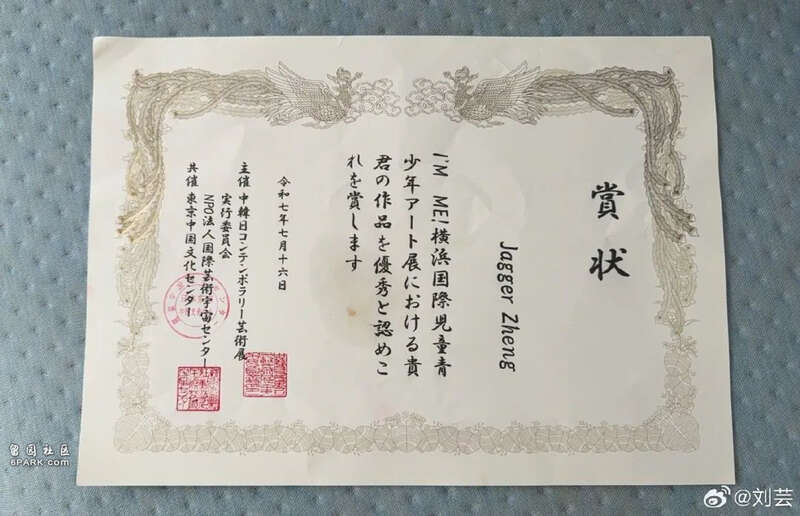 賞状
Jagger Zheng
I'M ME!横浜国際児童青
少年アート展における貴
君の作品を優秀と認めこ
れを賞します
令和七年七月十六日
主催 中韓日コンテンポラリー芸術展
実行委員会
NPO法人国際芸術宇宙センター
共催 東京中国文化センター
留园社区
6PARK.com
@刘芸